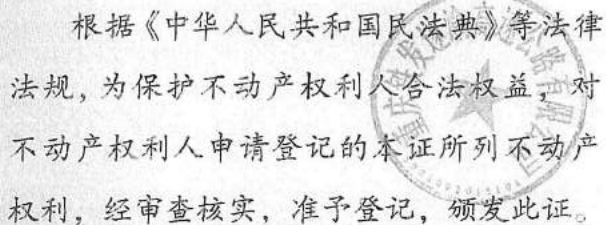 根据《中华人民共和国民法典》等法律
法规，为保护不动产权利人合法权益，对
不动产权利人申请登记的本证所列不动产
权利，经审查核实，准予登记，颁发此证。